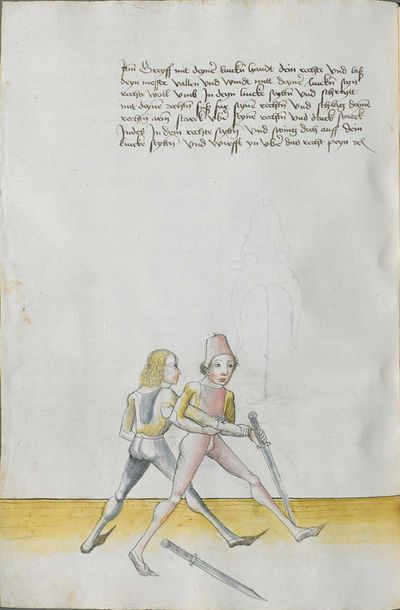 Itm Greyff mit deyner lincken handt dein rechte vnd laß
deyn messer vallen vnd windt mitt deyner lincken sein
rechte woll vmb In deyn lincke seytten vnd schreytt
mit deyne rechten fuß fur seyne rechten vnd schlag deyne
rechten arm starck vber seyne rechten vnd druck starck
Indes In dein rechte seytten vnd swing dich auf dein
lincke seytten vnd wirfft yn vber das recht peyn